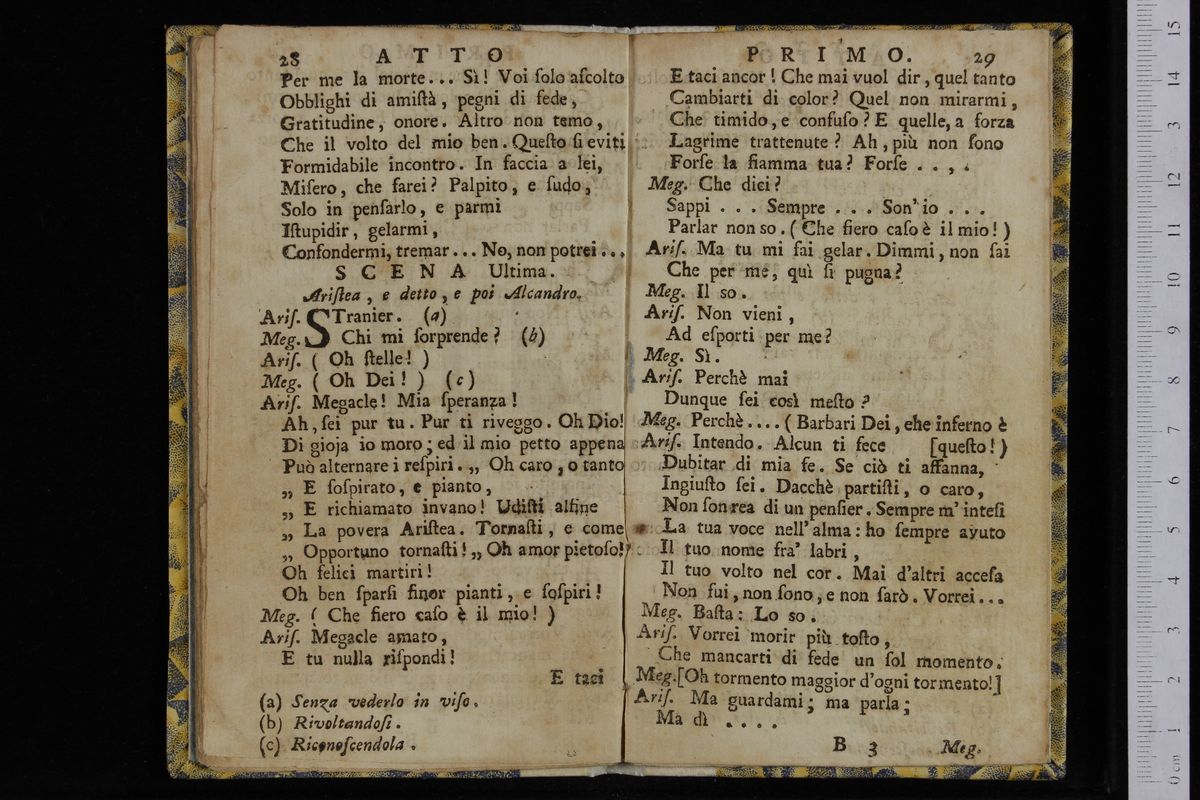 28 ATTO
Per me la morte... Sì! Voi ſolo aſcolto
Obblighi di amiſtà, pegni di fede,
Gratitudine, onore. Altro non temo,
Che il volto del mio ben. Queſto ſi eviti
Formidabile incontro. In faccia a lei,
Miſero, che farei? Palpito, e ſudo,
Solo in penſarlo, e parmi
Iſtupidir, gelarmi,
Confondermi, tremar... No, non potrei...
SCENA Ultima.
Ariſtea, e detto, e poi Alcandro.
Ariſ. STranier. (a)
Meg. Chi mi ſorprende? (b)
Ariſ. ( Oh ſtelle! )
Meg. ( Oh Dei! ) (c)
Ariſ. Megacle! Mia ſperanza!
Ah, ſei pur tu. Pur ti riveggo. Oh Dio!
Di gioja io moro; ed il mio petto appena
Può alternare i reſpiri. „ Oh caro, o tanto
„ E ſoſpirato, e pianto,
„ E richiamato invano! Udiſti alfine
„ La povera Ariſtea. Tornaſti, e come
„ Opportuno tornaſti! „ Oh amor pietoſo!
Oh felici martiri!
Oh ben ſparſi finor pianti, e ſoſpiri!
Meg. ( Che fiero caſo è il mio! )
Ariſ. Megacle amato,
E tu nulla riſpondi!
E taci
(a) Senza vederlo in viſo.
(b) Rivoltandoſi.
(c) Riconoſcendola.
PRIMO. 29
E taci ancor! Che mai vuol dir, quel tanto
Cambiarti di color? Quel non mirarmi,
Che timido, e confuſo? E quelle, a forza
Lagrime trattenute? Ah, più non ſono
Forſe la fiamma tua? Forſe . . , .
Meg. Che dici?
Sappi . . . Sempre . . . Son' io . . .
Parlar non so. ( Che fiero caſo è il mio! )
Ariſ. Ma tu mi fai gelar. Dimmi, non ſai
Che per me, quì ſi pugna?
Meg. Il so.
Ariſ. Non vieni,
Ad eſporti per me?
Meg. Sì.
Ariſ. Perchè mai
Dunque ſei così meſto?
Meg. Perchè.... ( Barbari Dei, che inferno è
Ariſ. Intendo. Alcun ti fece [queſto! )
Dubitar di mia fe. Se ciò ti affanna,
Ingiuſto ſei. Dacchè partiſti, o caro,
Non ſon rea di un penſier. Sempre m' inteſi
La tua voce nell' alma: ho ſempre avuto
Il tuo nome fra' labri,
Il tuo volto nel cor. Mai d'altri acceſa
Non fui, non ſono, e non ſarò. Vorrei...
Meg. Baſta: Lo so.
Ariſ. Vorrei morir più toſto,
Che mancarti di fede un ſol momento.
Meg. [Oh tormento maggior d'ogni tormento!]
Ariſ. Ma guardami; ma parla;
Ma dì . . . .
B 3 Meg.
0 cm 1 2 3 4 5 6 7 8 9 10 11 12 13 14 15